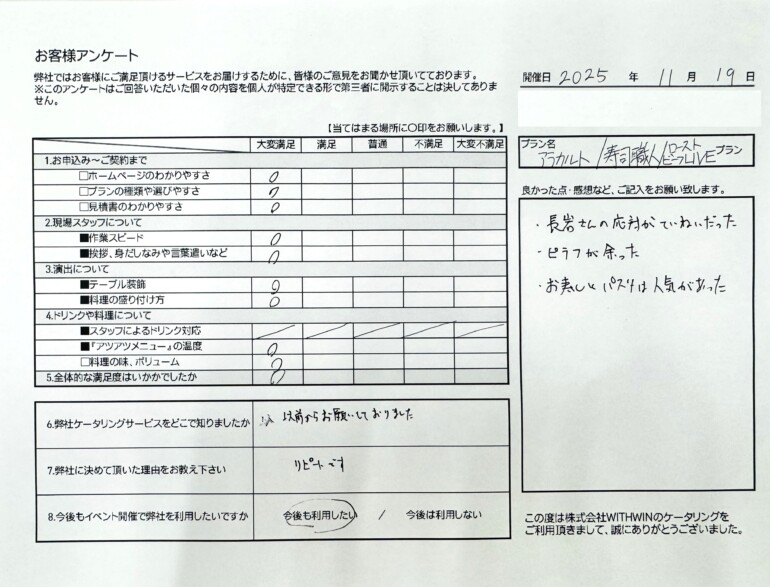 お客様アンケート
弊社ではお客様にご満足頂けるサービスをお届けするために、皆様のご意見をお聞かせ頂いてております。
※このアンケートはご回答いただいた個々の内容を個人が特定できる形で第三者に開示することは決してありま
せん。
開催日 2025 年 11 月 19 日
【当てはまる場所に〇印をお願いします。】
プラン名
アラカルト/寿司職人/ローストビーフLIVEプラン
大変満足 満足 普通 不満足 大変不満足
1.お申込み～ご契約まで
□ホームページのわかりやすさ
□プランの種類や選びやすさ
□見積書のわかりやすさ
2.現場スタッフについて
■作業スピード
■挨拶、身だしなみや言葉遣いなど
3.演出について
■テーブル装飾
■料理の盛り付け方
4.ドリンクや料理について
■スタッフによるドリンク対応
■『アツアツメニュー』の温度
□料理の味、ボリューム
5.全体的な満足度はいかかでしたか
良かった点・感想など、ご記入をお願い致します。
・長岩さんの応対がていねいだった
・ピラフが余った
・お蒸しとパスタは人気があった
6.弊社ケータリングサービスをどこで知りましたか
以前からお願いしておりました
7.弊社に決めて頂いた理由をお教え下さい
リピートです
8.今後もイベント開催で弊社を利用したいですか
今後も利用したい / 今後は利用しない
この度は株式会社WITHWINのケータリングを
ご利用頂きまして、誠にありがとうございました。